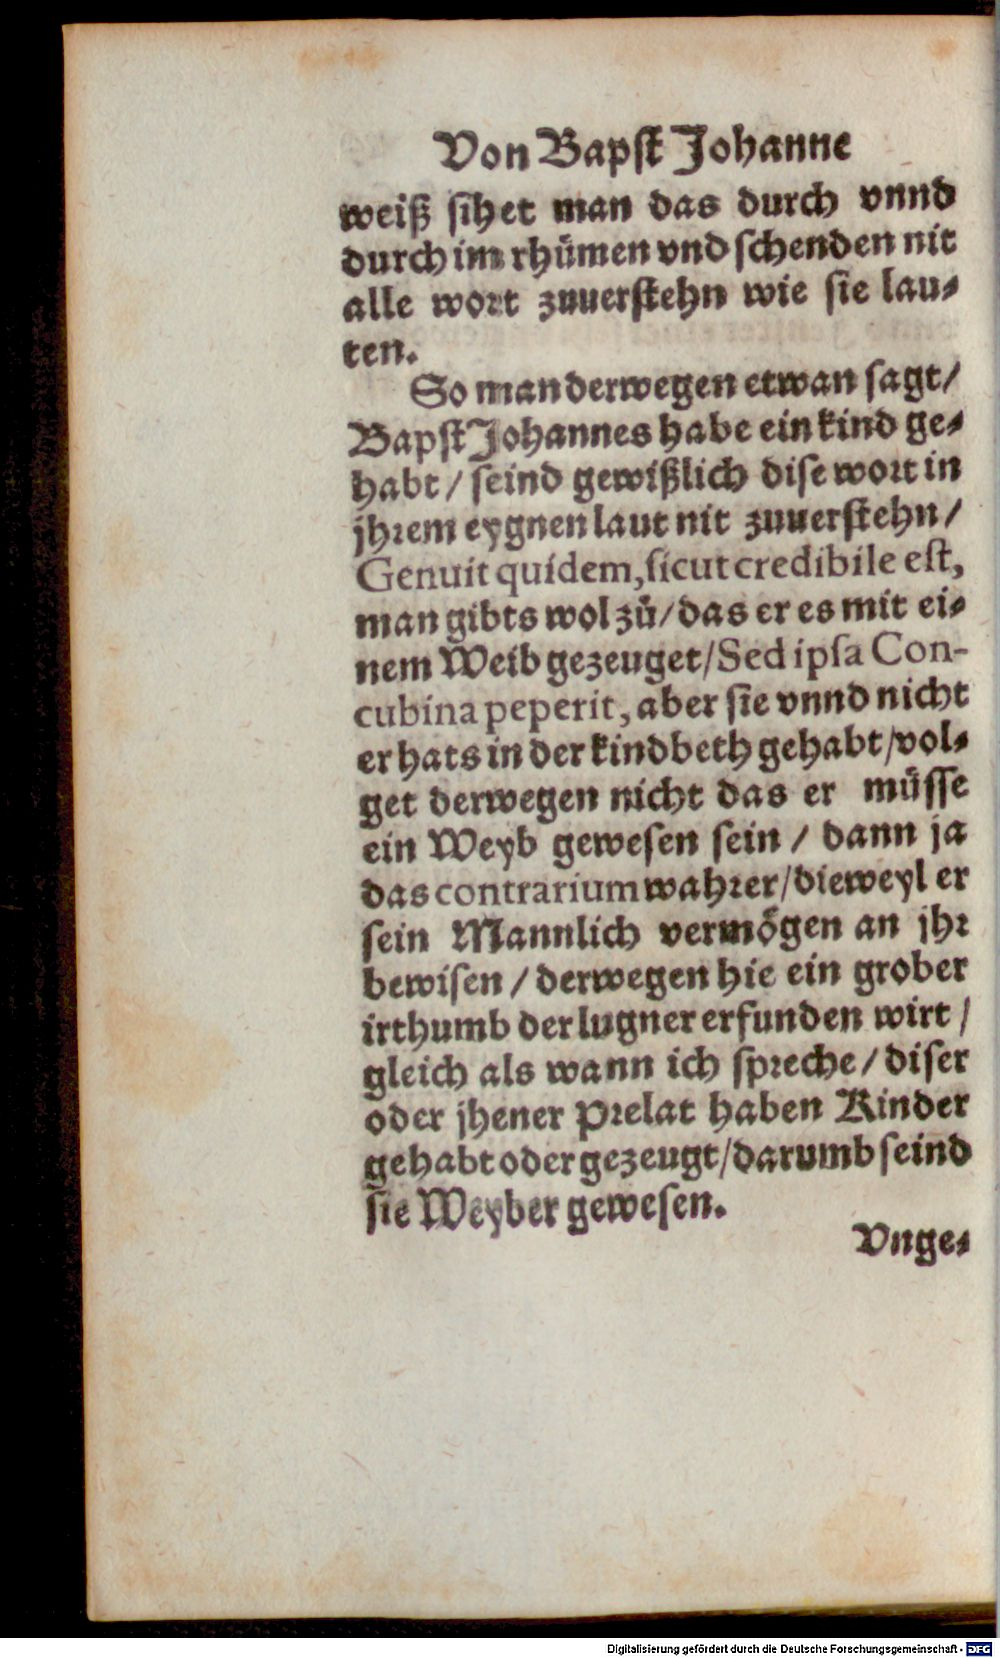 Von Bapst Johanne
weiß sihet man das durch vnnd
durch im rhuͤmen vnd schenden nit
alle wort zuuerstehn wie sie lau⸗
ten.
So man derwegen etwan sagt/
Bapst Johannes habe ein kind ge⸗
habt / seind gewißlich dise wort in
jhrem eygnen laut nit zuuerstehn/
Genuit quidem, sicut credibile est,
man gibts wol zuͦ/das er es mit ei⸗
nem Weib gezeuget/Sed ipsa Con-
cubina peperit, aber sie vnnd nicht
er hats in der kindbeth gehabt/vol⸗
get derwegen nicht das er muͤsse
ein Weyb gewesen sein / dann ja
das contrarium wahrer/dieweyl er
sein Mannlich vermoͤgen an jhr
bewisen / derwegen hie ein grober
irthumb der lugner erfunden wirt /
gleich als wann ich spreche / diser
oder jhener Prelat haben Kinder
gehabt oder gezeugt/darumb seind
sie Weyber gewesen.
Vnge⸗
Digitalisierung gefördert durch die Deutsche Forschungsgemeinschaft - DFG